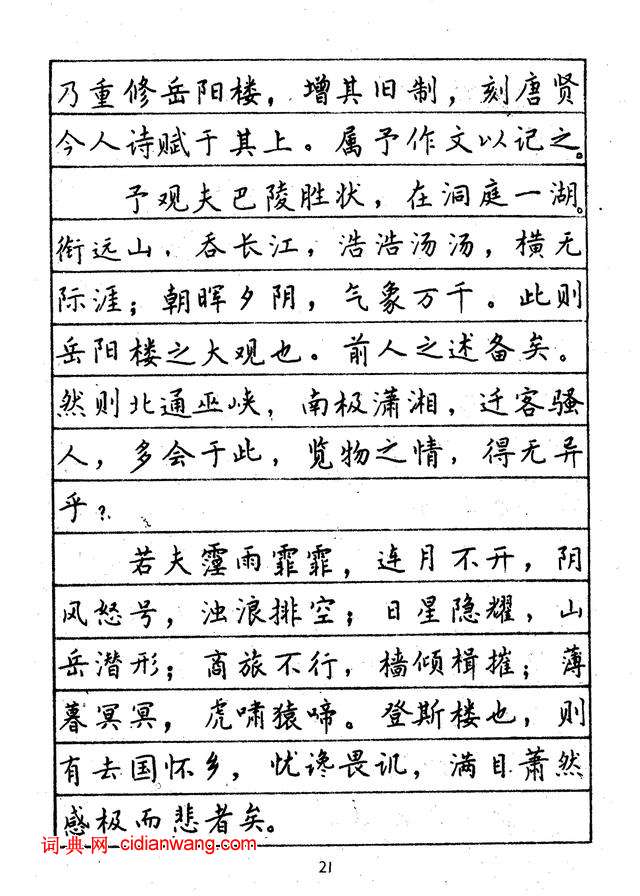 乃重修岳阳楼，增其旧制，刻唐贤
今人诗赋于其上。属予作文以记之。
予观夫巴陵胜状，在洞庭一湖。
衔远山，吞长江，浩浩汤汤，横无
际涯；朝晖夕阴，气象万千。此则
岳阳楼之大观也。前人之述备矣。
然则北通巫峡，南极潇湘，迁客骚
人，多会于此，览物之情，得无异
乎？
若夫霪雨霏霏，连月不开，阴
风怒号，浊浪排空；日星隐耀，山
岳潜形；商旅不行，樯倾楫摧；薄
暮冥冥，虎啸猿啼。登斯楼也，则
有去国怀乡，忧谗畏讥，满目萧然
感极而悲者矣。
词典网 cidianwang.com
21